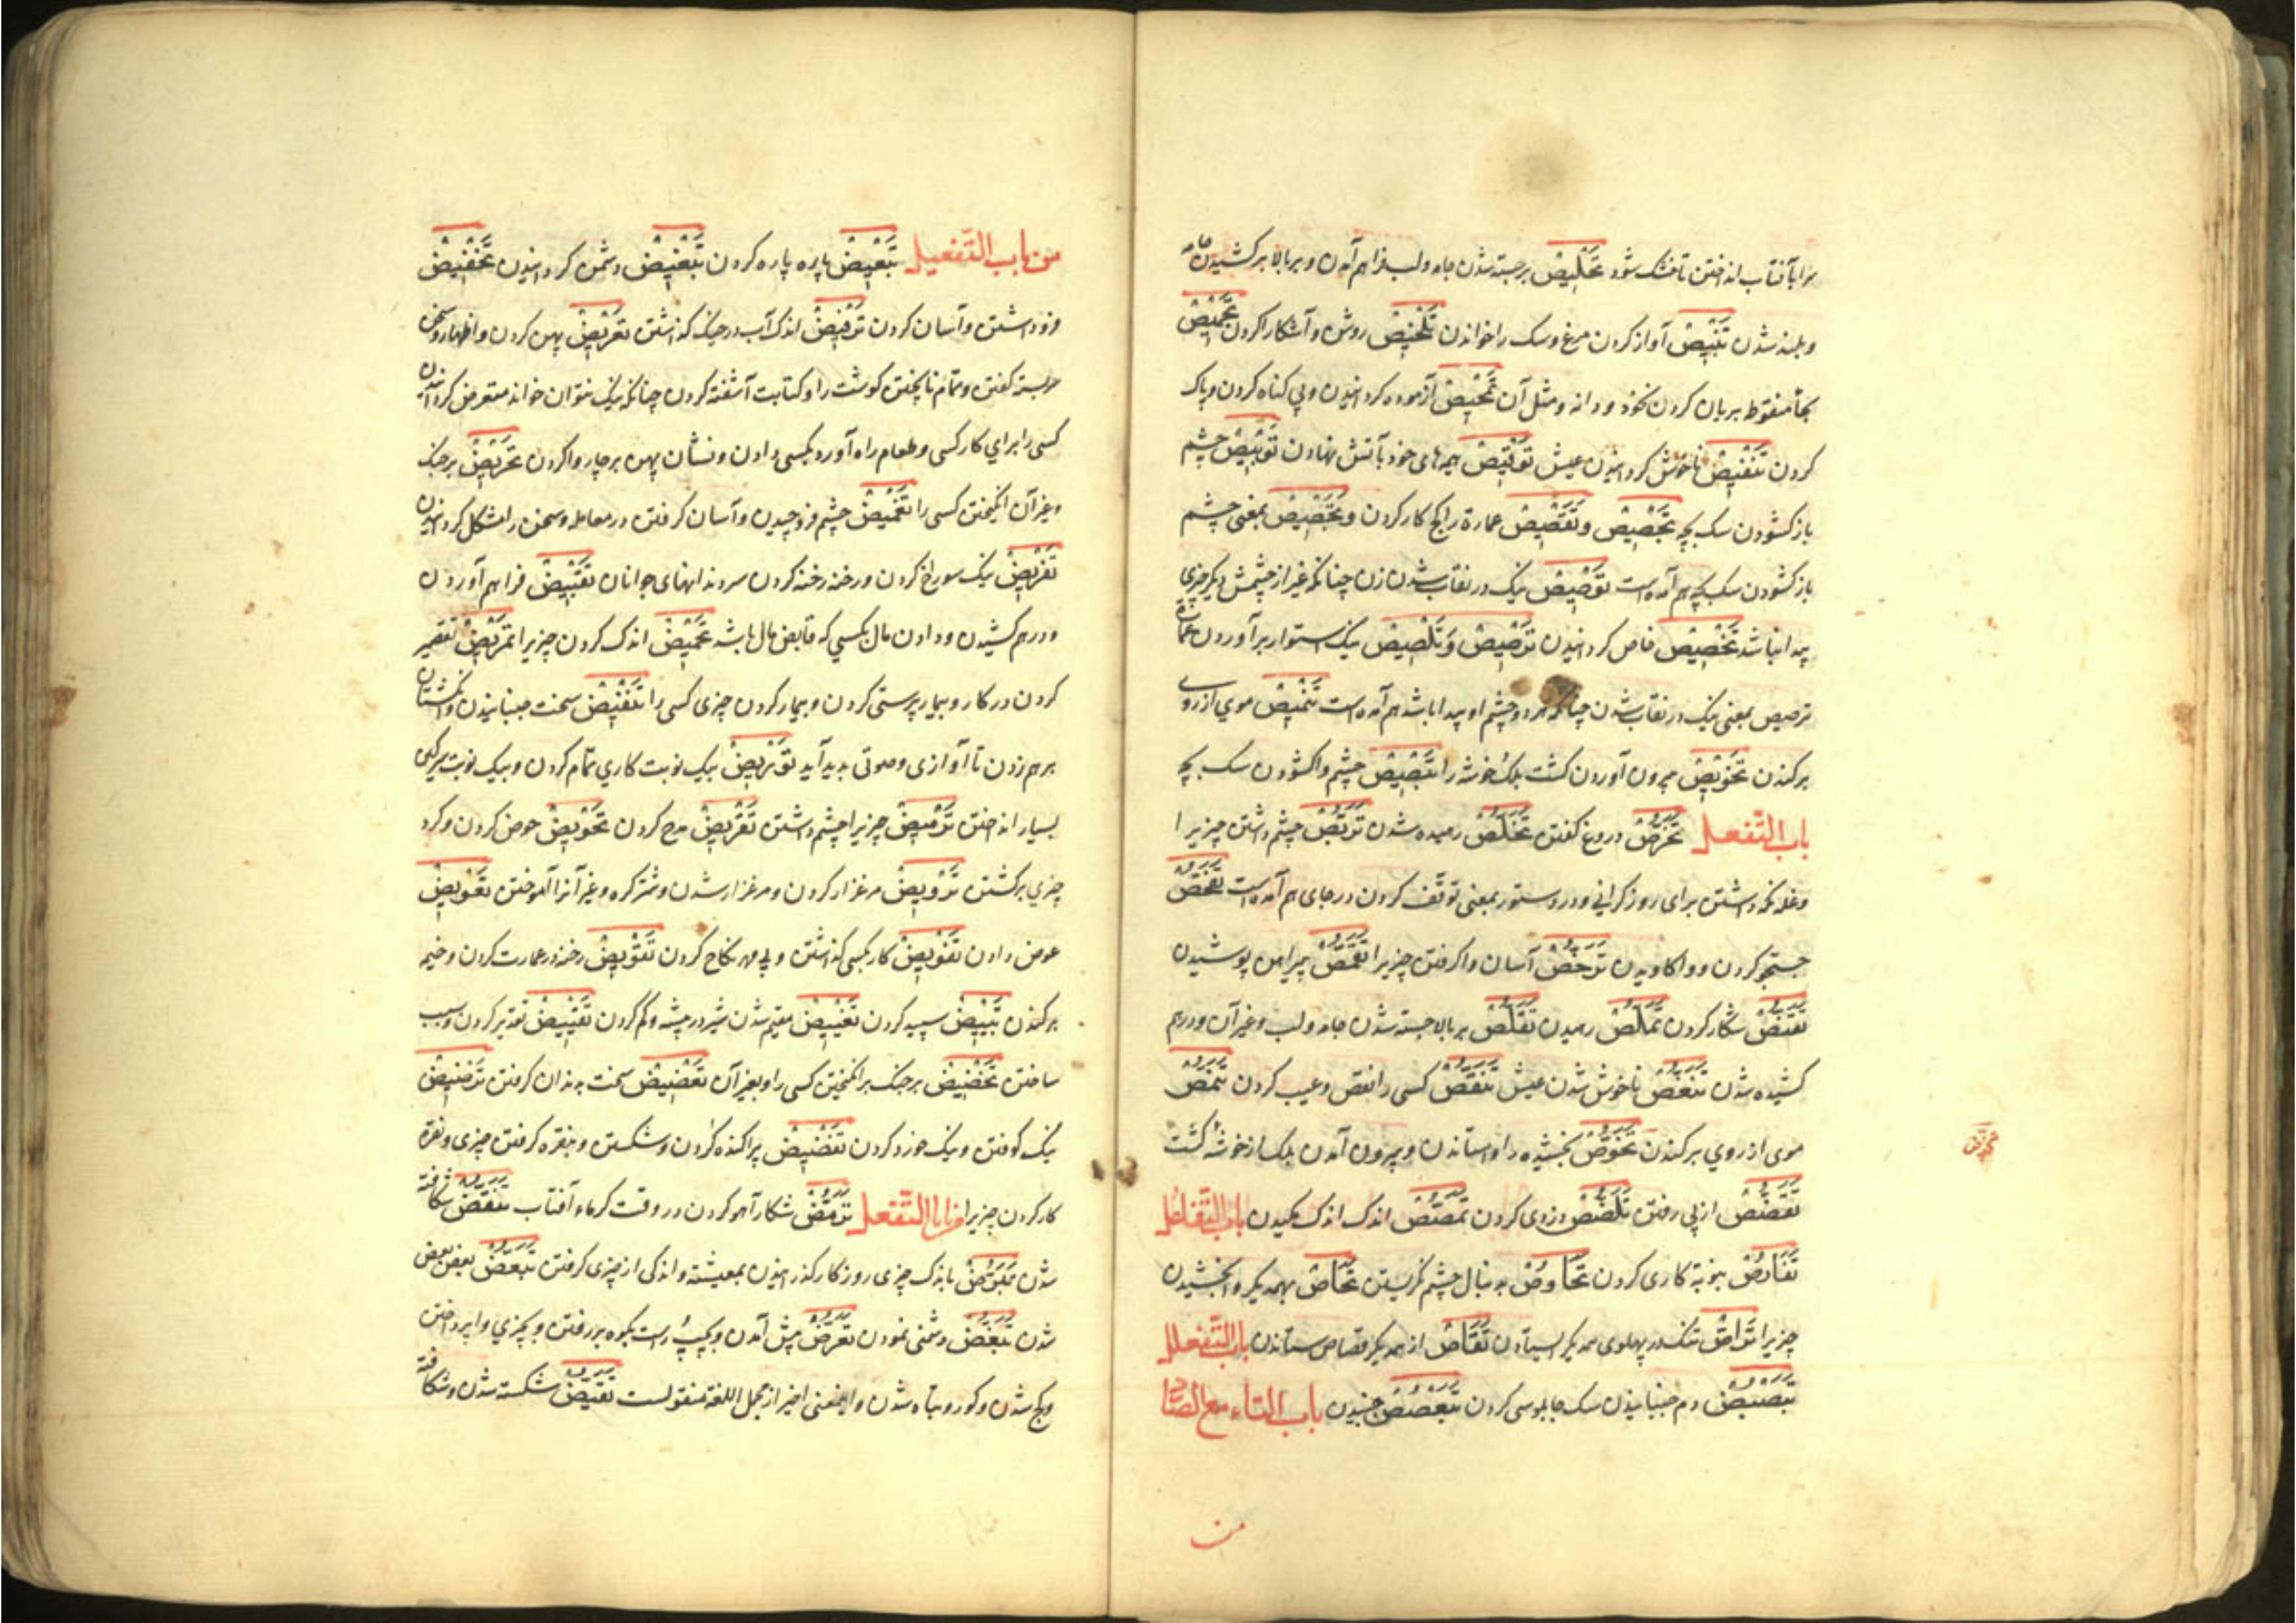 را بآفتاب انداختن تا خشک شود تَخْلِیصْ برجسته شدن جامه ولب فراهم آمدن و بر بالا برکشیدن جامه
و بلند شدن تَنْبِیصْ آواز کردن مرغ وسک را خواندن تَلْخِیصْ روشن و آشکارا کردن تَحْمِیصْ
بحاء منقوط بریان کردن نخود و دانه و مثل آن تَمْحِیصْ آزموده کردانیدن و بی کناه کردن و پاک
کردن تَنْغِیصْ ناخوش کردانیدن عیش تَوْقِیصْ هیمه‌های خرد بآتش نهادن تَوْبِیصْ چشم
باز کشودن سک بچه تَجْصِیصْ و تَقْصِیصْ عمارة را بکچ کار کردن و تَجْصِیصْ بمعنی چشم
باز کشودن سک بچه هم آمده است تَوْصِیصْ نیک در نقاب شدن زن چنانکه غیر از چشمش دیکر چیزی
پیدا نباشد تَخْصِیصْ خاص کردانیدن تَرْصِیصْ وَ تَلْصِیصْ نیک استوار برآوردن عمارة
ترصیص بمعنی نیک در نقاب شدن چنانکه هر دو چشم او پیدا باشد هم آمده است تَنْمِیصْ موی از روی
برکندن تَخْوِیصْ بیرون آوردن کشت بلک خوشه را تَبْصِیصْ چشم واکشودن سک بچه
باب التَّفعل تَخَرُّصْ دروغ کفتن تَخَلُّصْ رهیده شدن تَرَبُّصْ چشم داشتن چیزیرا
و غله نکه داشتن برای روز کرانی و در دستور بمعنی توقف کردن در جای هم آمده است تَفَحُّصْ
جستجو کردن و واکاویدن تَرَخُّصْ آسان واکرفتن چیزیرا تَقَمُّصْ پیراهن پوشیدن
تَقَنُّصْ شکار کردن تَمَلُّصْ رهیدن تَقَلُّصْ بر بالا جسته شدن جامه ولب و غیر آن و درهم
کشیده شدن تَنَغُّصْ ناخوش شدن عیش تَنَقُّصْ کسی را نقص و عیب کردن تَنَمُّصْ
موی از روی برکندن تَخَوُّصْ بخشیده را واستاندن و بیرون آمدن بلک از خوشهٔ کشت
تَقَصُّصْ از پی رفتن تَلَصُّصْ دزدی کردن تَمَصُّصْ اندک اندک مکیدن باب التَّفاعُل
تَفَارُصْ بنوبة کاری کردن تَخَاوُصْ بدنبال چشم نکریستن تَحَاصّْ بهمدیکر وابخشیدن
چیزیرا تَرَاصّْ تنک در پهلوی همدیکر ایستادن تَقَاصّْ از همدیکر قصاص ستاندن باب التَّفعلل
تَبَصْبُصْ دم جنبانیدن سک چابلوسی کردن تَبَعْصُصْ جنبیدن باب التاء مع الضّاد
من
من باب التَّفعیل تَبْعِیضْ پاره پاره کردن تَبْغِیضْ دشمن کردانیدن تَخْفِیضْ
فرو داشتن و آسان کردن تَرْفِیضْ اندک آب در خیک کذاشتن تَعْرِیضْ پهن کردن و اظهار و سخن
سربسته کفتن و تمام ناپختن کوشت را و کتابت آشفته کردن چنانکه نیک نتوان خواند متعرض کردانیدن
کسی را برای کار کسی و طعام راه آورد بکسی دادن و نشان پهن بر چاروا کردن تَحْرِیضْ بر جنک
و غیر آن انکیختن کسی را تَغْمِیضْ چشم فرو چیدن و آسان کرفتن در معامله و سخن را مشکل کردانیدن
تَفْرِیضْ نیک سوراخ کردن و رخنه رخنه کردن سر دندانهای جوانان تَقْبِیضْ فراهم آوردن
و درهم کشیدن و دادن مال بکسی که قابض مال باشد تَحْمِیضْ اندک کردن چیزیرا تَمْرِیضْ تقصیر
کردن در کار و بیمارپرستی کردن و بیمار کردن چیزی کسی را تَنْقِیضْ سخت جنبانیدن و انکشتان
برهم زدن تا آوازی و صوتی پدید آید
بسیار انداختن تَرْمِیضْ چیزیرا چشم داشتن تَقْرِیضْ مدح کردن تَحْوِیضْ حوض کردن و کرد
چیزی برکشتن تَرْوِیضْ مرغزار کردن و مرغزار شدن و شتر کره و غیر آنرا آموختن تَعْوِیضْ
عوض دادن تَفْوِیضْ کار بکسی کذاشتن و بی مهر نکاح کردن تَقْوِیضْ رخنه در عمارت کردن و خیمه
برکندن تَبْیِیضْ سپید کردن تَغْیِیضْ مقیم شدن شیر در بیشه و کم کردن تَقْیِیضْ تقدیر کردن و سبب
ساختن تَحْضِیضْ بر جنک برانکیختن کسی را و بغیر آن تَعْضِیضْ سخت بدندان کرفتن تَرْضِیضْ
نیک کوفتن و نیک خورد کردن تَفْضِیضْ پراکنده کردن و شکستن و بنقره کرفتن چیزی و نقره
کار کردن چیزیرا من باب التَّفعل تَرَمُّضْ شکار آهو کردن در وقت کرماء آفتاب تَنَقُّضْ شکافته
شدن تَبَرُّضْ باندک چیزی روزکار کذرانیدن بمعیشة و اندکی از چیزی کرفتن تَبَعُّضْ بعض بعض
شدن تَبَغُّضْ دشمنی نمودن تَعَرُّضْ پیش آمدن و بچپ و راست بکوه بر رفتن و بچیزی واپرداختن
و کج شدن و کور و تباه شدن و اینمعنی اخیر از مجمل اللغة منقولست تَقَیُّضْ شکسته شدن و شکافته